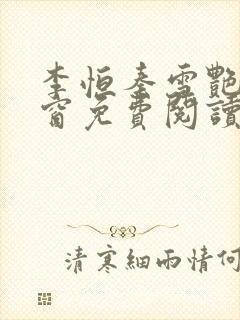 李恒秦雪艷
窗免費閱讀
清寒細雨情何